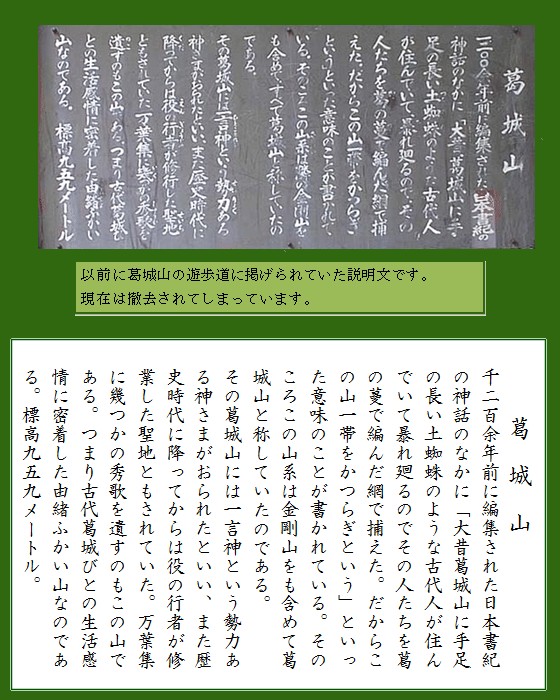 葛城山
一二〇〇余年前に編集された日本書紀の
神話のなかに「大昔葛城山に手
足の長い土蜘蛛のような古代人
が住んでいて暴れ廻るのでその
人たちを葛の蔓で編んだ網で捕
えた。だからこの山一帯をかつらぎ
というといった意味のことが書かれて
いる。そのころこの山系は隣の金剛山を
も含めてすべて葛城山と称していたの
である。
その葛城山には一言神という勢力ある
神さまがおられたといい、また歴史時代に
降ってからは役の行者が修行した聖地
ともされていた。万葉集に幾つかの秀歌を
遺すのもこの山である。つまり古代葛城び
との生活感情に密着した由緒ふかい
山なのである。 標高九五九メートル
以前に葛城山の遊歩道に掲げられていた説明文です。
現在は撤去されてしまっています。
葛城山
千二百余年前に編集された日本書紀
の神話のなかに「大昔葛城山に手足
の長い土蜘蛛のような古代人が住ん
でいて暴れ廻るのでその人たちを葛
の蔓で編んだ網で捕えた。だからこ
の山一帯をかつらぎという」といっ
た意味のことが書かれている。その
ころこの山系は金剛山をも含めて葛
城山と称していたのである。
その葛城山には一言神という勢力あ
る神さまがおられたといい、また歴
史時代に降ってからは役の行者が修
業した聖地ともされていた。万葉集
に幾つかの秀歌を遺すのもこの山で
ある。つまり古代葛城びとの生活感
情に密着した由緒ふかい山なのであ
る。標高九五九メートル。